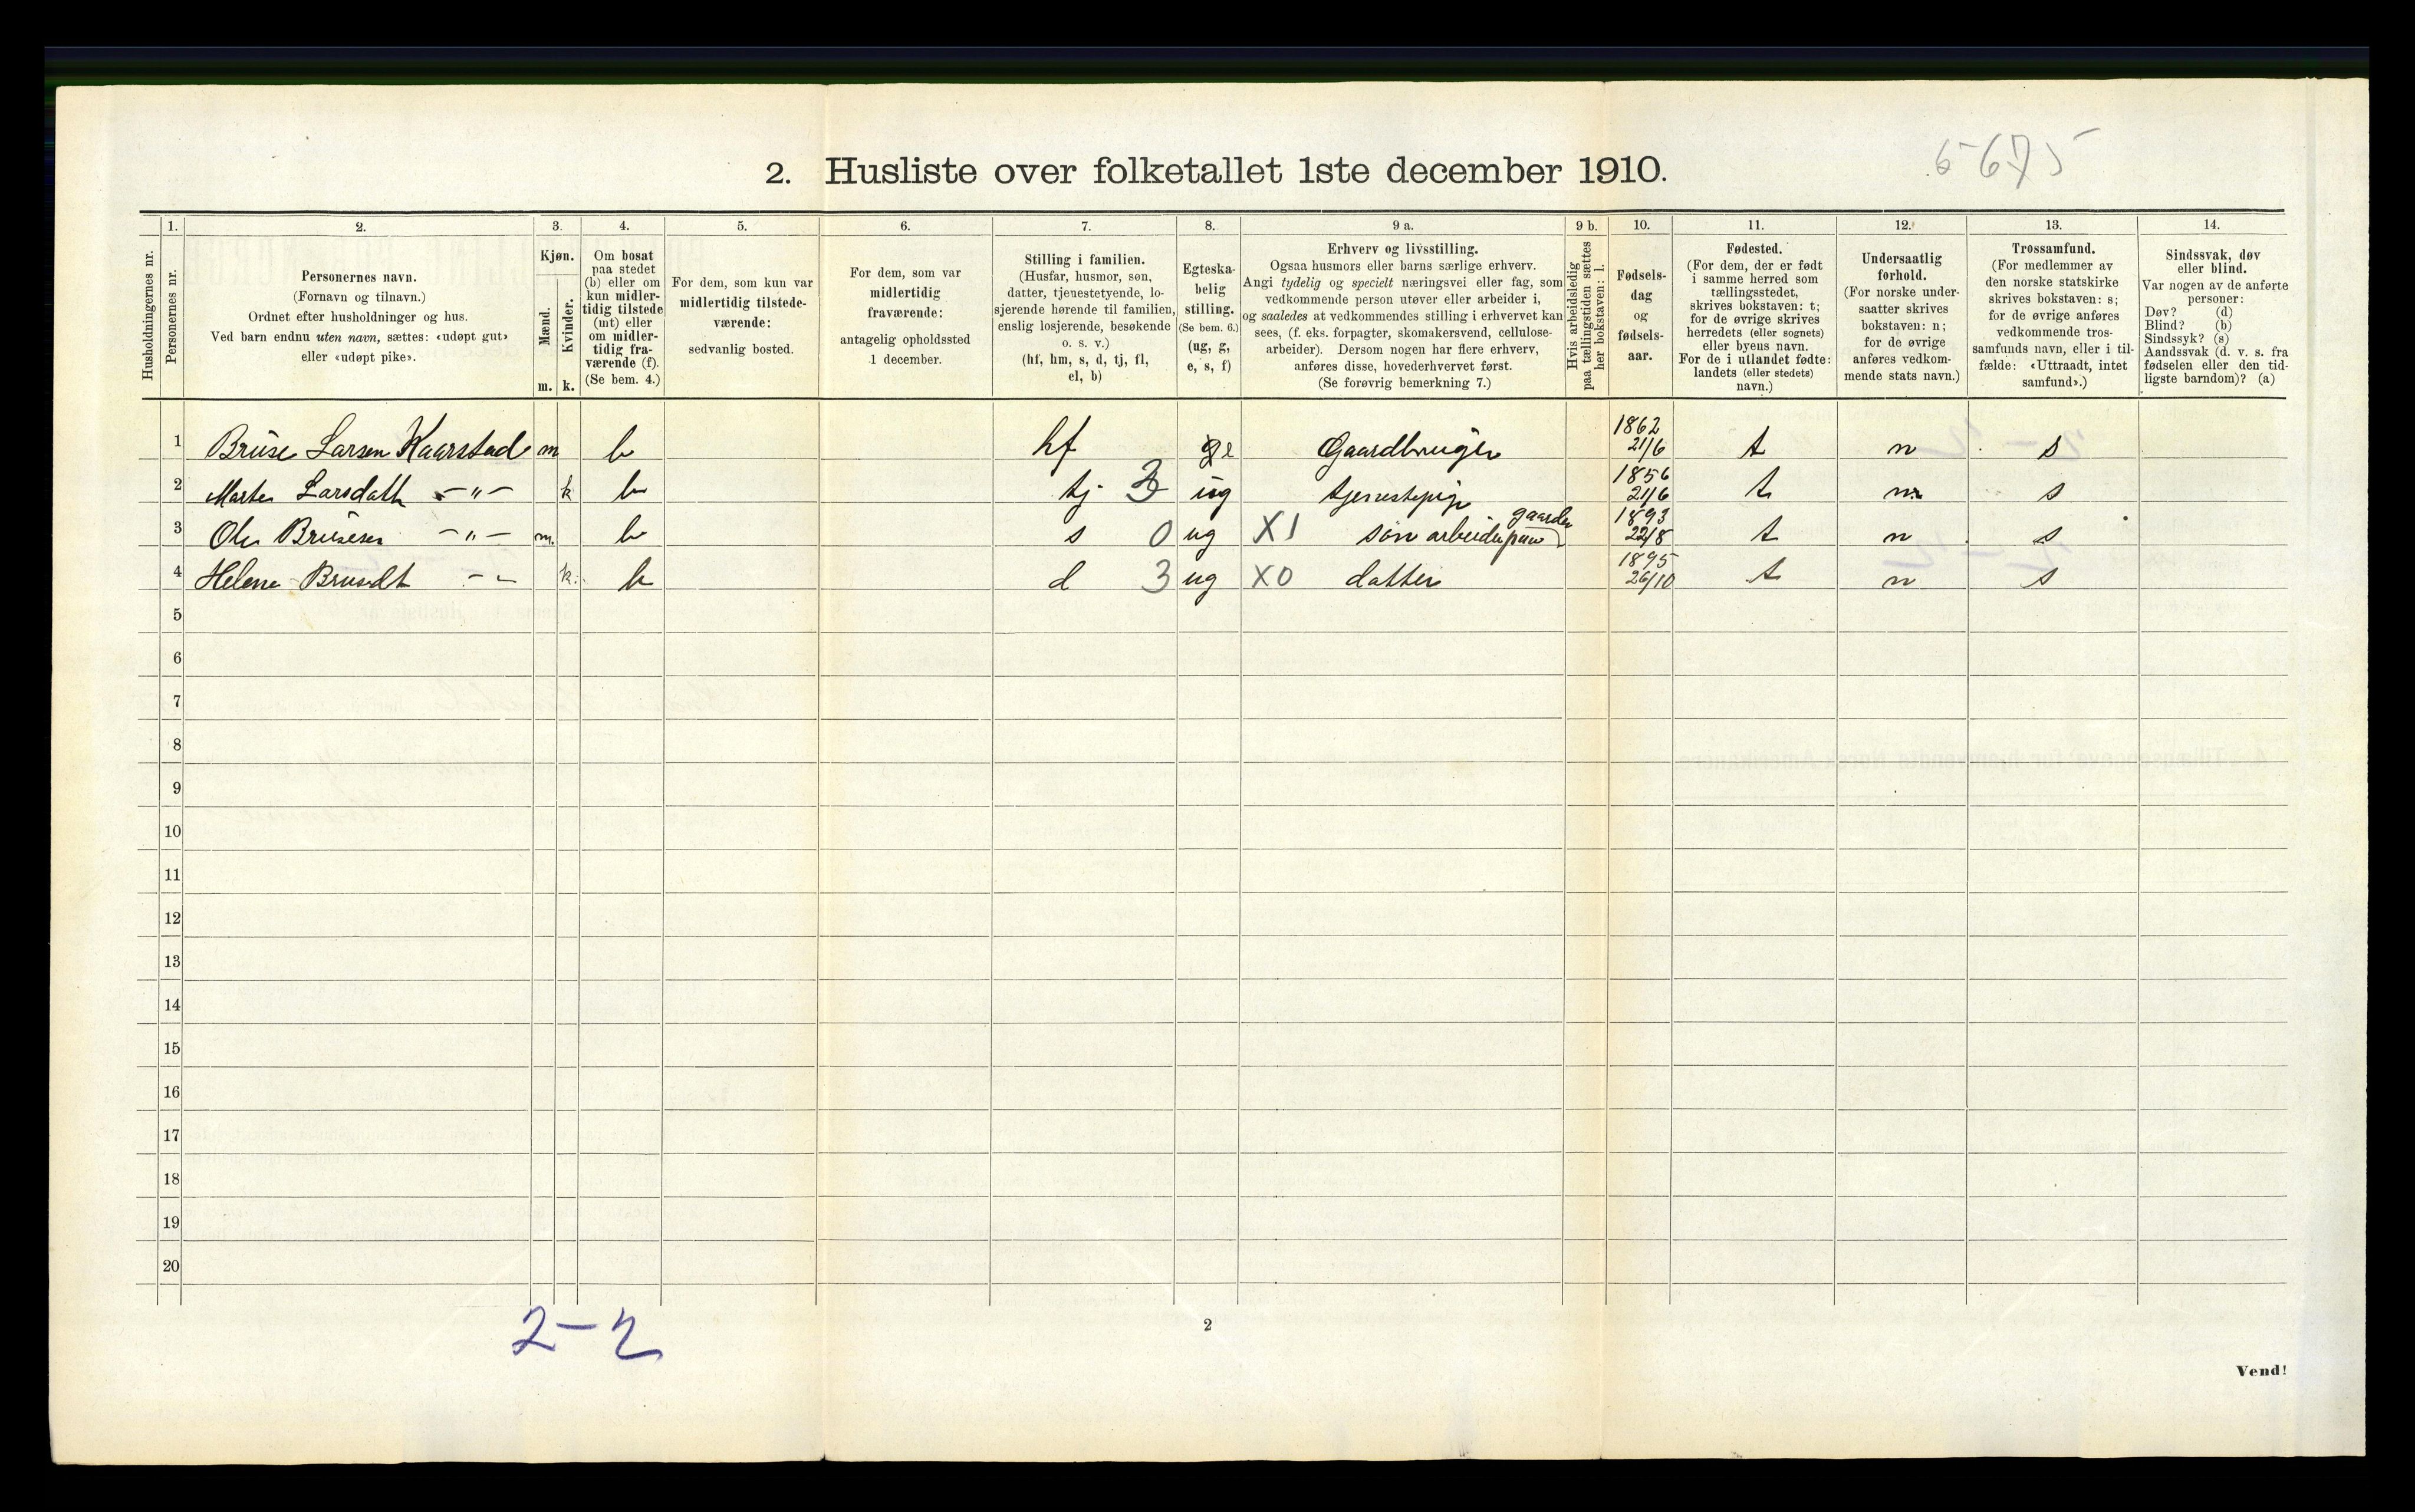 5675
2. Husliste over folketallet 1ste december 1910.
Husholdningernes nr.
1. Personernes nr.
2. Personernes navn.
(Fornavn og tilnavn.)
Ordnet efter husholdninger og hus.
Ved barn endnu uten navn, sættes: «udøpt gut»
eller «udøpt pike».
3. Kjøn.
Mænd. m.
Kvinder. k.
4. Om bosat
paa stedet
(b) eller om
kun midler-
tidig tilstede
(mt) eller
om midler-
tidig fra-
værende (f).
(Se bem. 4.)
5. For dem, som kun var
midlertidig tilstede-
værende:
sedvanlig bosted.
6. For dem, som var
midlertidig
fraværende:
antagelig opholdssted
1 december.
7. Stilling i familien.
(Husfar, husmor, søn,
datter, tjenestetyende, lo-
sjerende hørende til familien,
enslig losjerende, besøkende
o. s. v.)
(hf, hm, s, d, tj, fl,
el, b)
8. Egteska-
belig
stilling.
(Se bem. 6.)
(ug, g,
e, s, f)
9 a. Erhverv og livsstilling.
Ogsaa husmors eller barns særlige erhverv.
Angi tydelig og specielt næringsvei eller fag, som
vedkommende person utøver eller arbeider i,
og saaledes at vedkommendes stilling i erhvervet kan
sees, (f. eks. forpagter, skomakersvend, cellulose-
arbeider). Dersom nogen har flere erhverv,
anføres disse, hovederhvervet først.
(Se forøvrig bemerkning 7.)
9 b. Hvis arbeidsledig
paa tællingstiden sættes
her bokstaven: l.
10. Fødsels-
dag
og
fødsels-
aar.
11. Fødested.
(For dem, der er født
i samme herred som
tællingsstedet,
skrives bokstaven: t;
for de øvrige skrives
herredets (eller sognets)
eller byens navn.
For de i utlandet fødte:
landets (eller stedets)
navn.)
12. Undersaatlig
forhold.
(For norske under-
saatter skrives
bokstaven: n;
for de øvrige
anføres vedkom-
mende stats navn.)
13. Trossamfund.
(For medlemmer av
den norske statskirke
skrives bokstaven: s;
for de øvrige anføres
vedkommende tros-
samfunds navn, eller i til-
fælde: «Uttraadt, intet
samfund».)
14. Sindssvak, døv
eller blind.
Var nogen av de anførte
personer:
Døv? (d)
Blind? (b)
Sindssyk? (s)
Aandssvak (d. v. s. fra
fødselen eller den tid-
ligste barndom)? (a)
1 Bruse Larsen Kaarstad m b hf e Gaardbruger 1862 21/6 t n s
2 Marte Larsdatt -"- k b tj 3 ug tjenestepige 1856 21/6 t n s
3 Ole Brusesen -"- m. b s 0 ug X1 søn arbeider paa gaarden 1893 22/8 t n s
4 Helene Brusdt - - k. b d 3 ug X0 datter 1895 26/10 t n s
5
6
7
8
9
10
11
12
13
14
15
16
17
18
19
20
2-2
2
Vend!